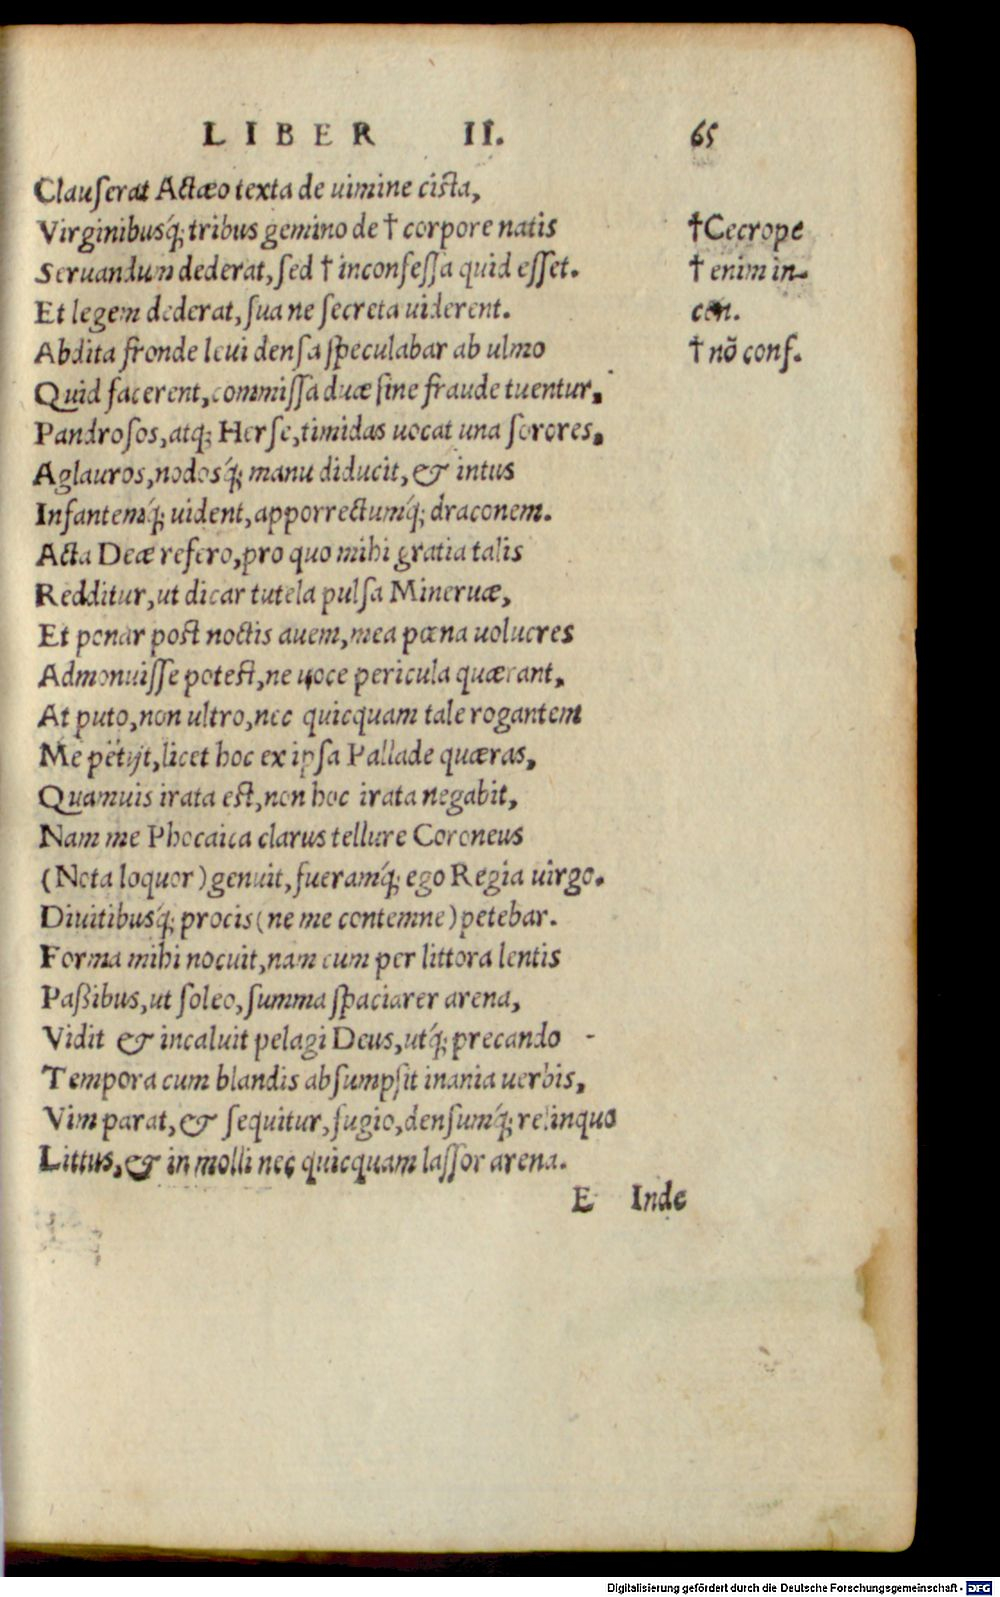 LIBER II. 65
Clauſerat Actæo texta de uimine ciſta,
Virginibusq́; tribus gemino de † corpore natis †Cecrope
Seruandum dederat, ſed † inconfeſſa quid eſſet. † enim in-
Et legem dederat, ſua ne ſecreta uiderent. con.
Abdita fronde leui denſa ſpeculabar ab ulmo † nõ conf.
Quid facerent, commiſſa duæ ſine fraude tuentur,
Pandroſos, atq; Herſe, timidas uocat una ſorores,
Aglauros, nodosq́; manu diducit, & intus
Infantemq́; uident, apporrectumq́; draconem.
Acta Deæ refero, pro quo mihi gratia talis
Redditur, ut dicar tutela pulſa Mineruæ,
Et ponar poſt noctis auem, mea pœna uolucres
Admonuiſſe poteſt, ne uoce pericula quærant,
At puto, non ultro, nec quicquam tale rogantem
Me petijt, licet hoc ex ipſa Pallade quæras,
Quamuis irata eſt, non hoc irata negabit,
Nam me Phocaica clarus tellure Coroneus
(Nota loquor) genuit, fueramq́; ego Regia uirgo.
Diuitibusq́; procis (ne me contemne) petebar.
Forma mihi nocuit, nam cum per littora lentis
Paßibus, ut ſoleo, ſumma ſpaciarer arena,
Vidit & incaluit pelagi Deus, utq́; precando
Tempora cum blandis abſumpſit inania uerbis,
Vim parat, & ſequitur, fugio, denſumq́; relinquo
Littus, & in molli nec quicquam laſſor arena.
E Inde
Digitalisierung gefördert durch die Deutsche Forschungsgemeinschaft - DFG